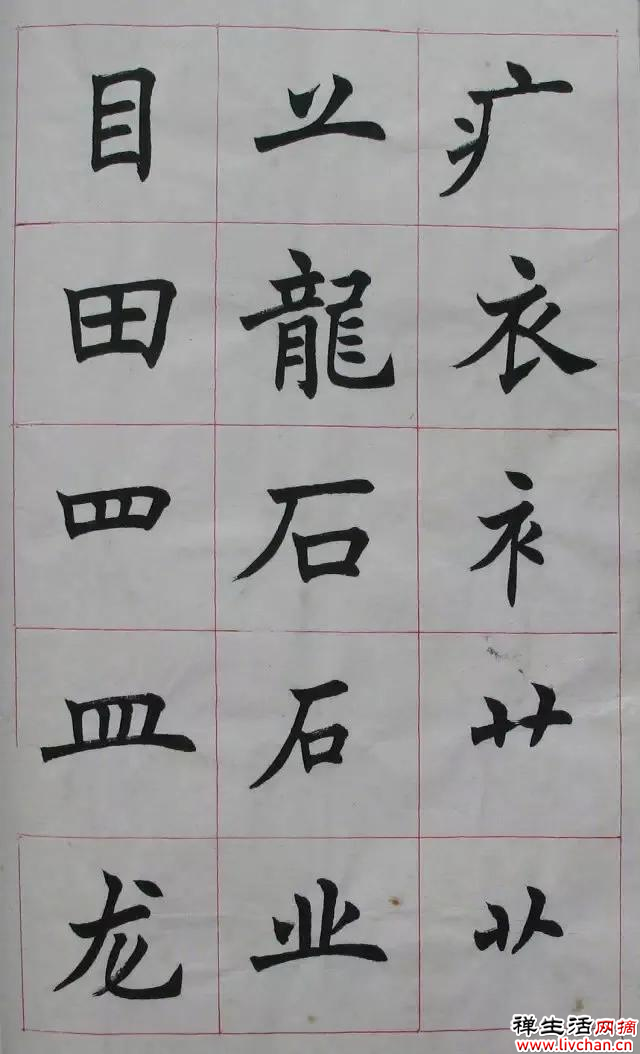 疒衣衤艹
䒑龍石石业
目田罒皿龙
禅生活网摘
www.livchan.cn